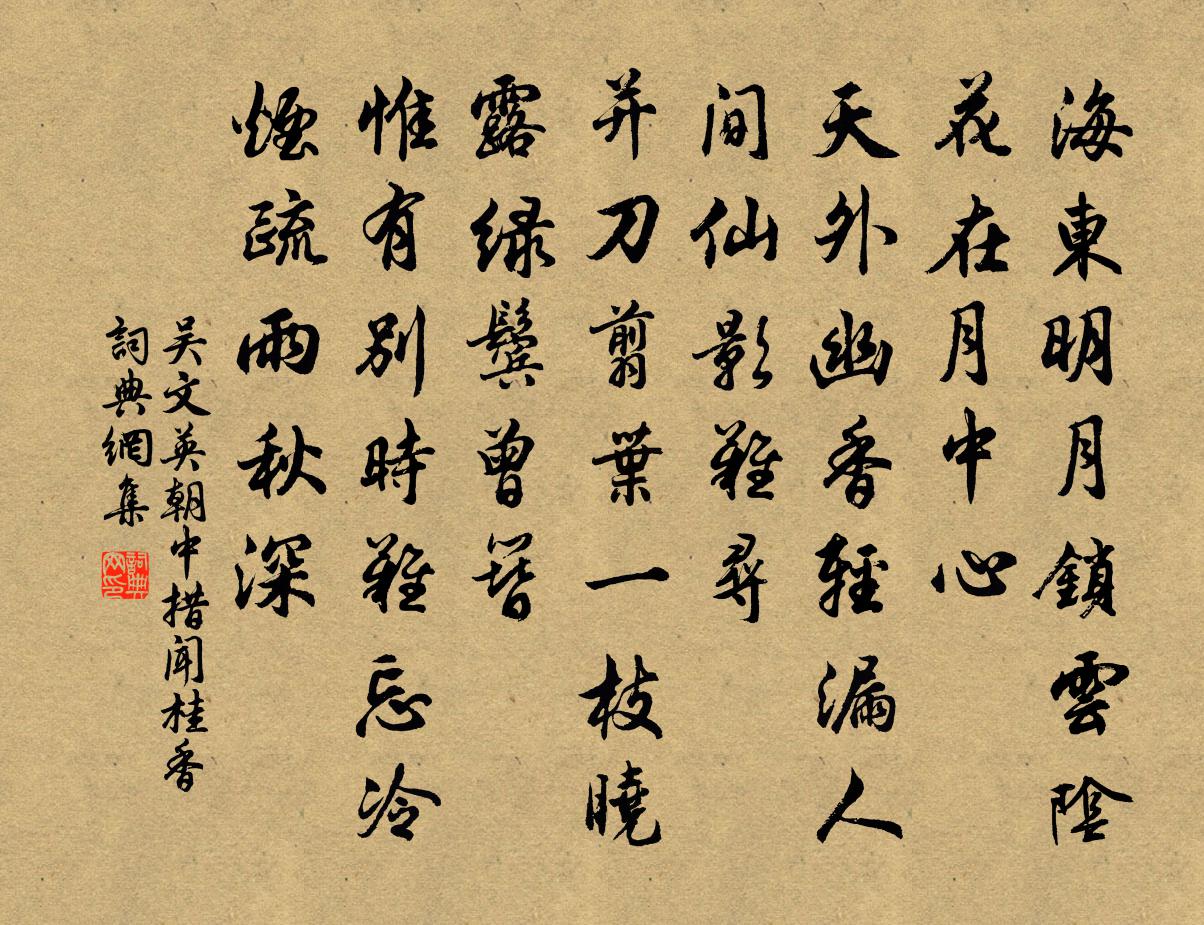 海東明月鎖雲陰
花在月中心
天外幽香輕漏人
間仙影難尋
并刀翦葉一枝曉
露綠鬓曾簪
惟有別時難忘冷
煙疏雨秋深
吴文英朝中措聞桂香
詞典網集
詞典网印